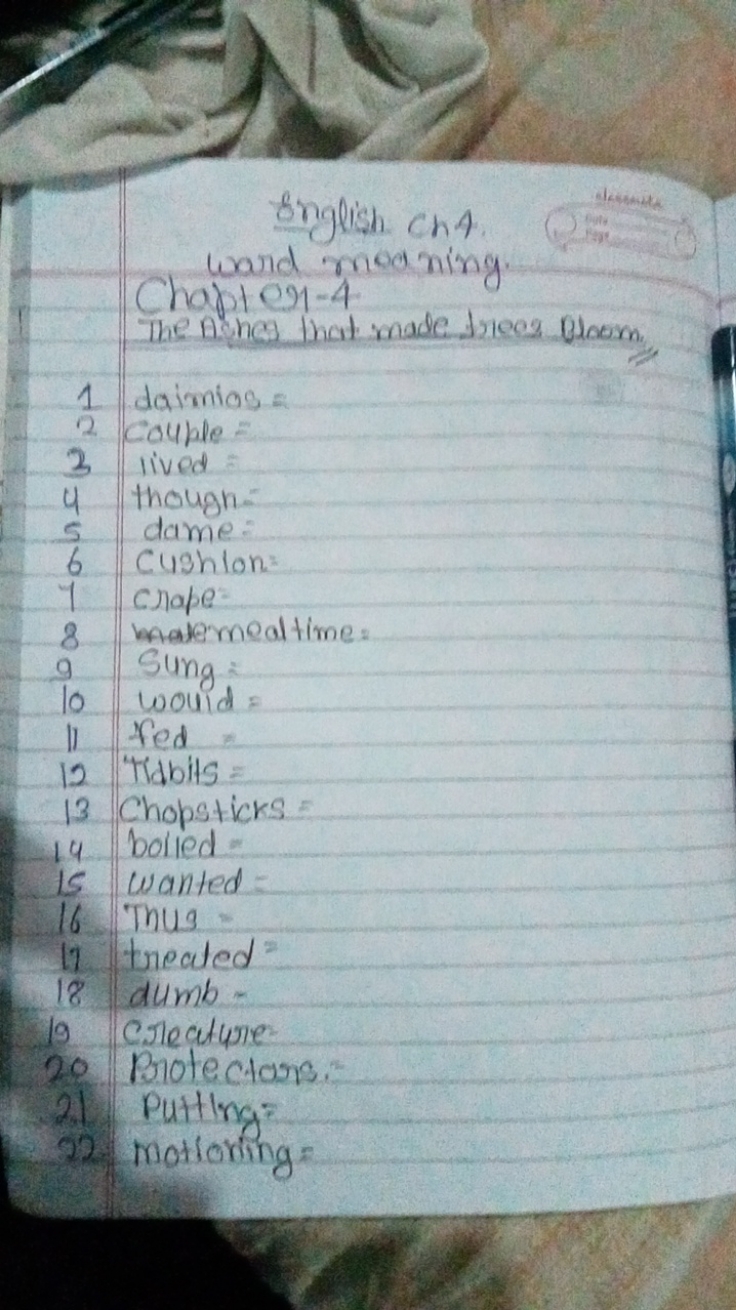 English Ch 4.
word meaning.
classmate
Date
Page
Chapter-4
The Ashes that made trees Bloom
1 daimios =
2 couple =
3 lived =
4 though =
5 dame =
6 cushion =
7 crape =
8 mealtime =
9 Sung =
10 would =
11 fed =
12 Tidbits =
13 Chopsticks =
14 boiled =
15 wanted =
16 Thus =
17 treated =
18 dumb -
19 creature -
20 Protectors. =
21 Putting =
22 motioning =